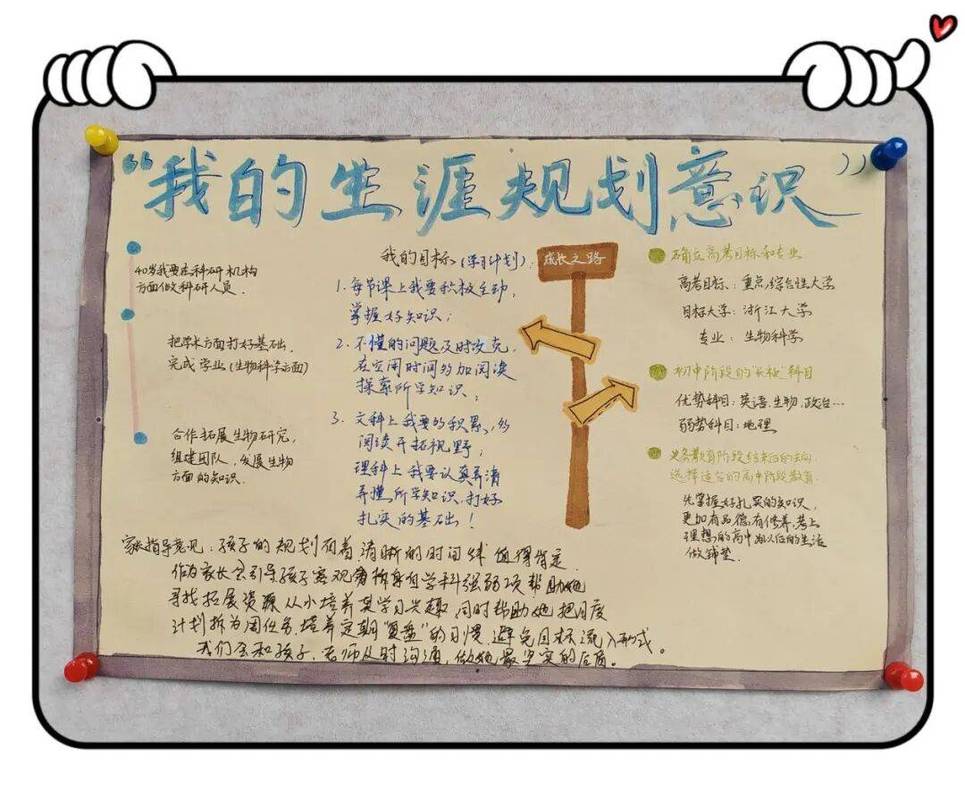 “我的生涯规划意识”
40岁我要在科研机构
方面做科研人员.
把学长方面打好基础.
完成学业(生物科学方面)
合作拓展生物研究,
组建团队,发展生物
方面的知识.
我的目标(学习计划):
1.每节课上我要积极主动,
掌握好知识;
2.不懂的问题及时攻克,
在空闲时间多加阅读
探索所学知识;
3.文科上我要多积累,多
阅读开拓视野;
理科上我要认真弄清
弄懂所学知识,打好
扎实的基础!
成长之路
确立高考目标和专业
高考目标:重点,综合性大学
目标大学:浙江大学
专业:生物科学
初中阶段的“长板”科目
优势科目:英语.生物.政治...
弱势科目:地理
义务教育阶段结束后的去向
选择适合的高中阶段教育.
先掌握好扎实的知识,
更加有品德,有修养,考上
理想的高中为以后的生活
做铺垫.
家长指导意见:孩子的规划有着清晰的时间线 值得肯定.
作为家长会引导孩子客观看待自身学科强弱项 帮助她
寻找拓展资源 从小培养其学习兴趣 同时帮助她把月度
计划拆为周任务.培养定期“复盘”的习惯 避免目标流入形式
我们会和孩子、老师及时沟通,做她最坚实的后盾。